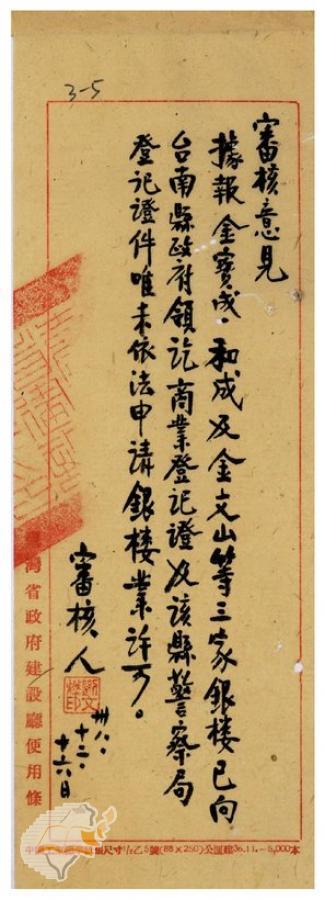 3-5
審核意見
據報金寶成、和成及金文山等三家銀楼已向
台南縣政府領訖商業登記證及該縣警察局
登記證件唯未依法申請銀楼業許可。
審核人
卅八、十二、十六日
臺灣省政府建設廳便用條